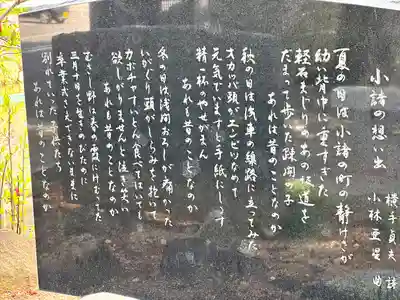 小諸の想い出
横手貞夫 詩
小林亜星 曲
夏の日は小諸の町の静けさが
幼い背中に重すぎた
軽石まじりのあの坂道を
だまって歩いた疎開の子
あれは昔のことなのか
秋の日は浅車の線路に立ってみた
オカッパ頭がチンピリなので
元気でいますと手紙に
精一杯のやせがまん
あれも昔のことなのか
冬の日は浅間おろしが痛かった
いがぐり頭がしらみを抱いて
カボチャすいとん食ってはいて
欲しがりませんと泣き笑い
あれも昔のことなのか
むさし野に春の霞にけむってた
三月十日を生きのびたのに
卒業式さえできないままに
別れていった君たち
あれは昔のことなのか